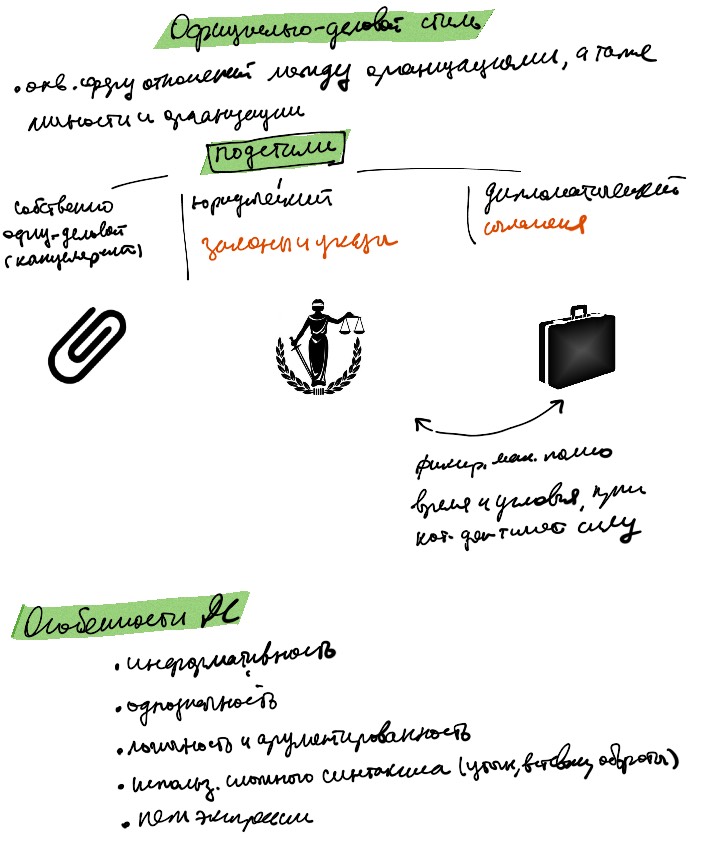 Официально-деловой стиль
• охв. сферу отношений между организациями, а также
личности и организации
подстили
собственно
офиц-деловой
(канцелярский)
юридический
законы и указы
дипломатический
соглашения
фиксир. мак. полно
время и условия, при
кот. док-т имеет силу
Особенности ДС
• информативность
• однозначность
• логичность и аргументированность
• использ. сложного синтаксиса (уточн, вставн, обороты)
• нет экспрессии